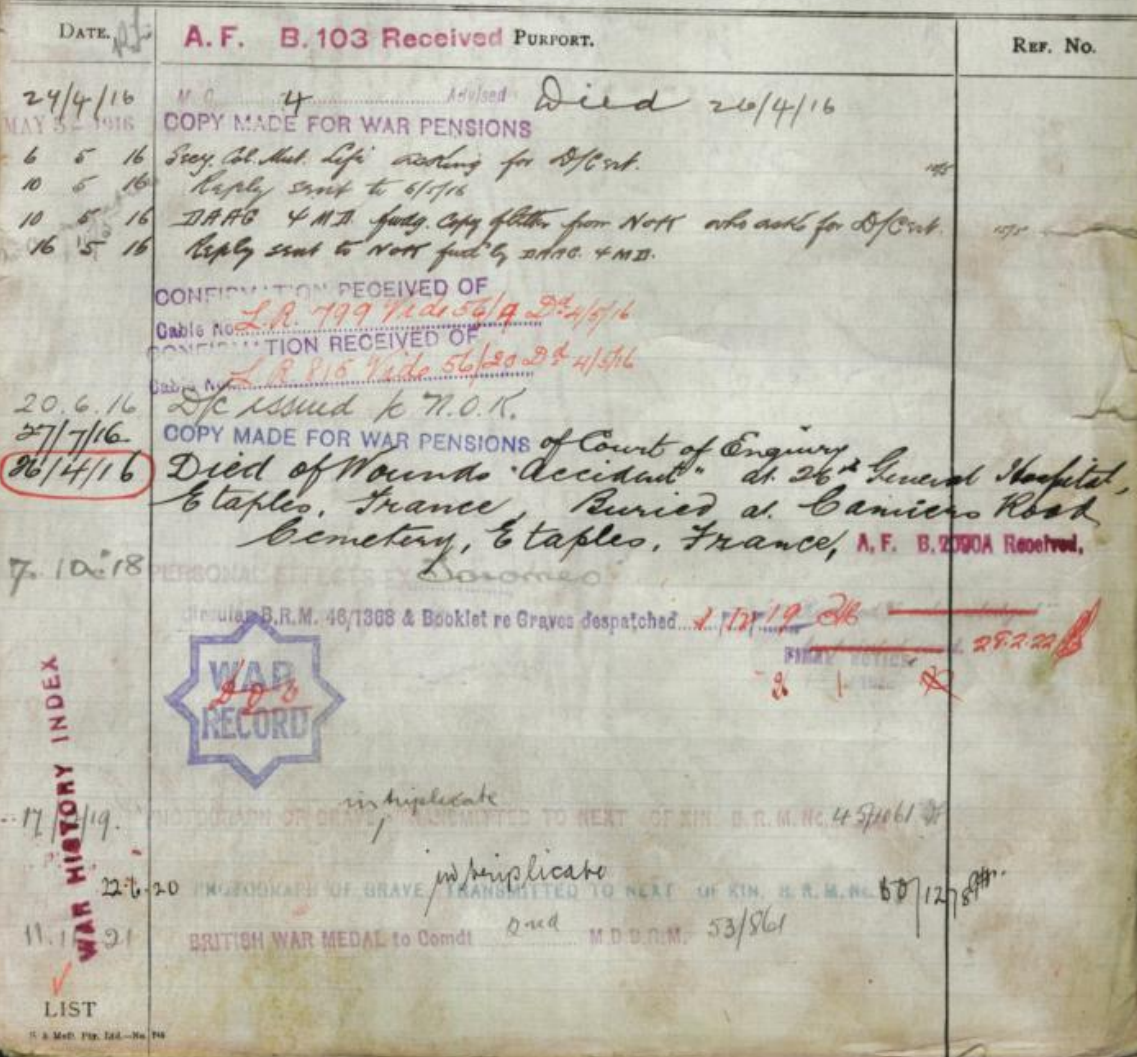 DATE. A. F. B. 103 Received PURPORT. REF. No.
29/4/16 M. C. 4 Advised Died 26/4/16
MAY 3 - 1916 COPY MADE FOR WAR PENSIONS
6 5 16 Secy. Col. Mut. Life asking for D/Cert.
10 5 16 Reply sent to 6/5/16
10 5 16 DAAG 4 MD. fwdg. Copy of letter from NoK who asks for D/Cert.
16 5 16 Reply sent to NoK fwd by DAAG. 4 MD.
CONFIRMATION RECEIVED OF
Cable No. L.R. 799 Vide 56/9 Dd 4/5/16
CONFIRMATION RECEIVED OF
Cable No. L R 815 Vide 56/20 Dd 4/5/16
20.6.16 D/C issued to N.O.K.
27/7/16 COPY MADE FOR WAR PENSIONS of Court of Enquiry
26/4/16 Died of Wounds "accident" at 26th General Hospital,
Etaples, France, Buried at Camiers Road
Cemetery, Etaples, France, A. F. B. 2090A Received,
7. 10. 18 PERSONAL EFFECTS EX
Circular B.R.M. 46/1368 & Booklet re Graves despatched
28.2.22
FINAL NOTICE
WAR
RECORD
in triplicate
PHOTOGRAPH OF GRAVE TRANSMITTED TO NEXT OF KIN. B.R.M. No. 45/1061
in triplicate
22.6.20 PHOTOGRAPH OF GRAVE TRANSMITTED TO NEXT OF KIN. B.R.M. No. 50/1278
BRITISH WAR MEDAL to Comdt 2nd M.D.B.R.M. 53/861
WAR HISTORY INDEX
LIST